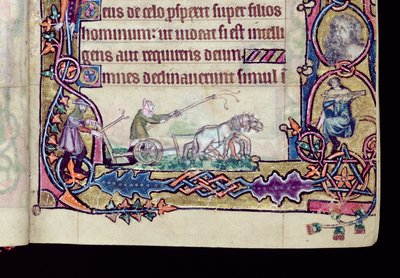 Deus de celo prospexit super filios
hominum: ut uideat si est intelli
gens aut requirens deum.
Omnes declinauerunt simul i